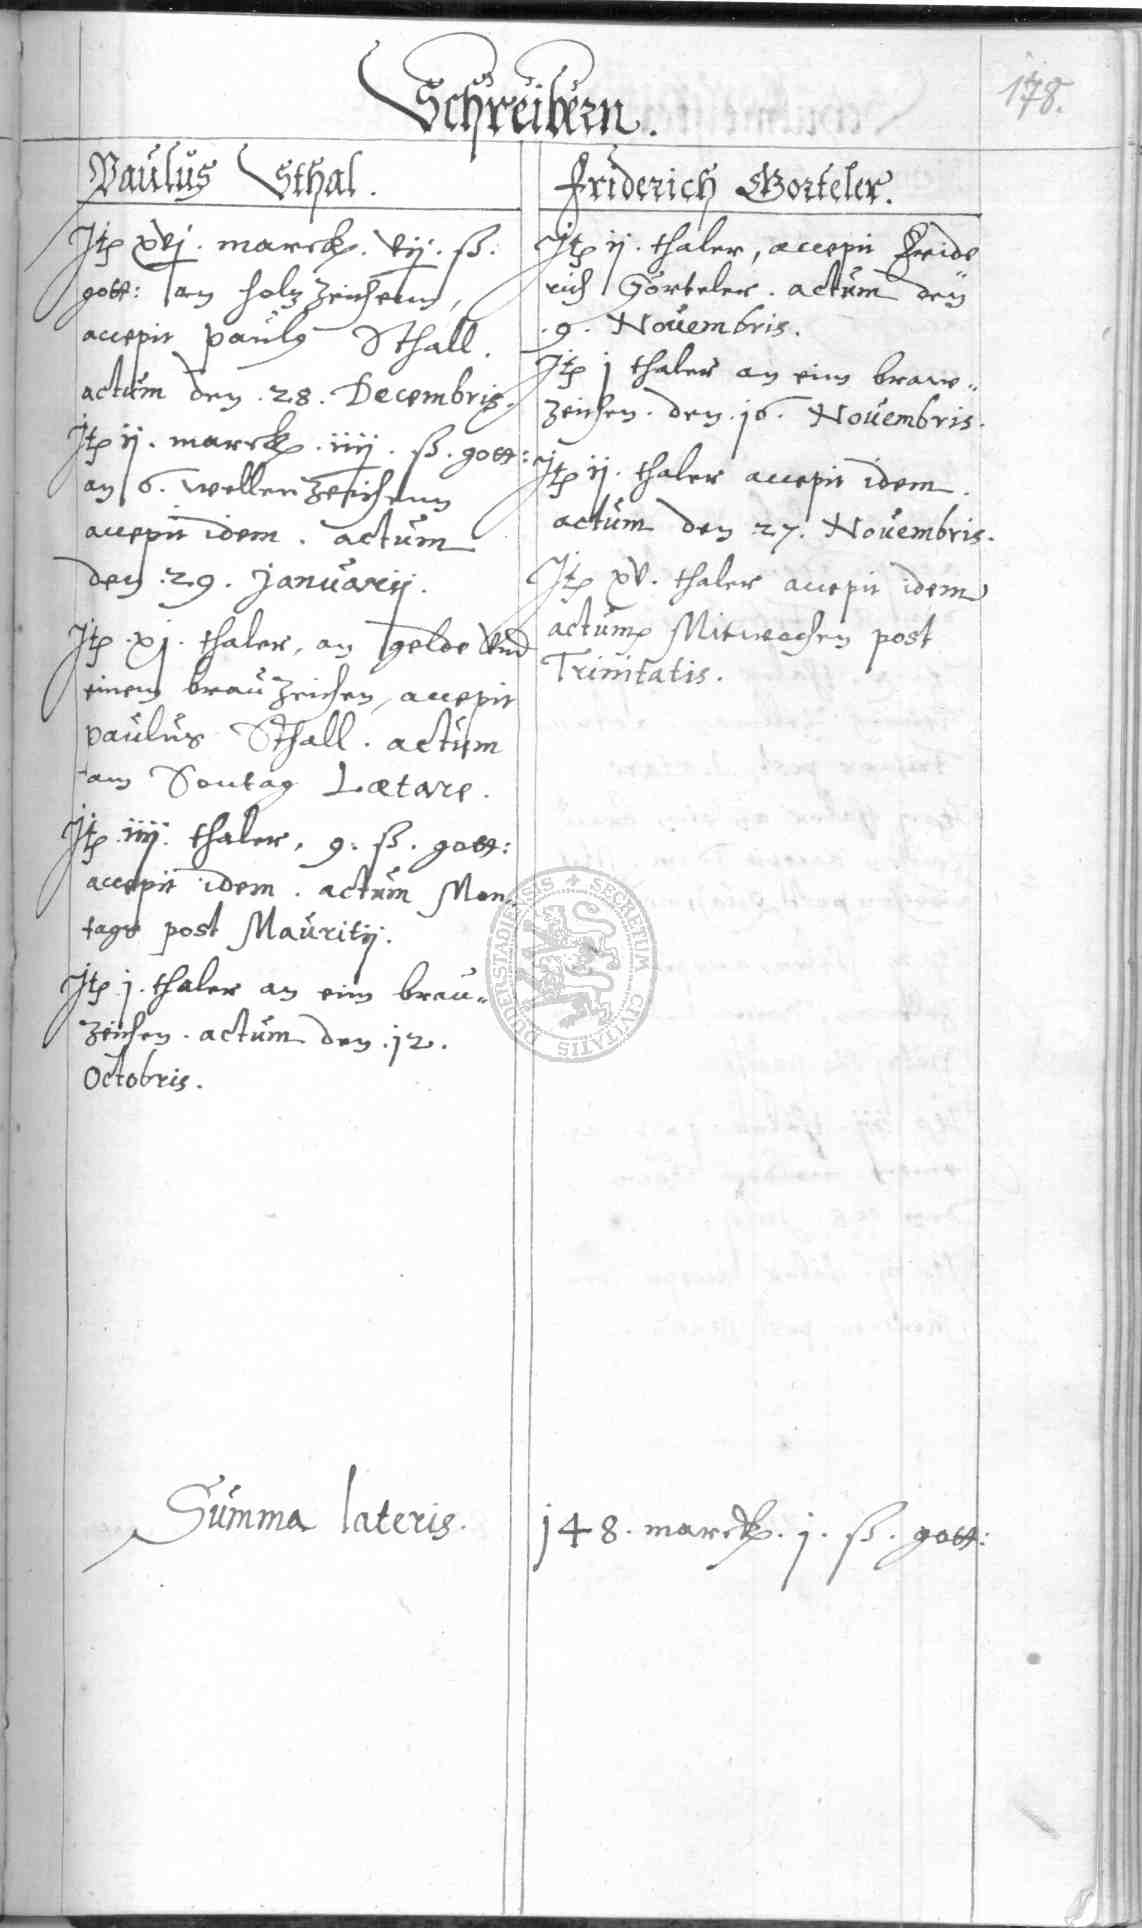 178.
Schreibern.
Paulus Sthal.
Jtp xvj. marck. vij. ß.
gott: an holz zeichenn,
accepit Paulus Sthall.
actum den .28. Decembris.
Jtp ij. marck. iiij. ß. gott:
an 6. wellen zeichenn
accepit idem. actum
den .29. Januarij.
Jtp .xj. thaler, an gelde vnd
einem brau zeichen, accepit
Paulus Sthall. actum
am Sontag Lætare.
Jtp iiij. thaler, 9. ß. gott:
accepit idem. actum Mon-
tags post Mauritij.
Jtp .j. thaler an eim brau-
zeichen. actum den .12.
Octobris.
Friderich Gorteler.
Jtp ij. thaler, accepit Fride
rich Görteler. actum den
.9. Novembris.
Jtp j thaler an eim braw-
zeichen. den .16. Novembris.
Jtp ij. thaler accepit idem.
actum den .27. Novembris.
Jtp xv. thaler accepit idem
actum Mitwochen post
Trinitatis.
SECRETUM CIVITATIS DUDERSTADIENSIS
Summa lateris. 148. marck. j. ß. gott: